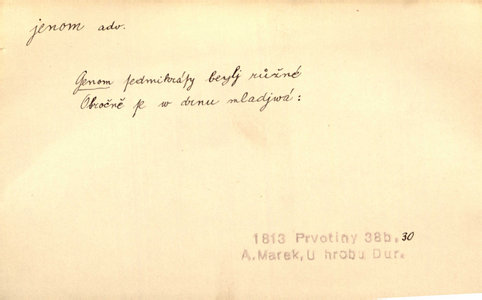 jenom adv.
Genom sedmikrásy beylj růžné
Obročně se w drnu mladjwá:
1813 Prvotiny 38b, 30
A. Marek, U hrobu Dur.